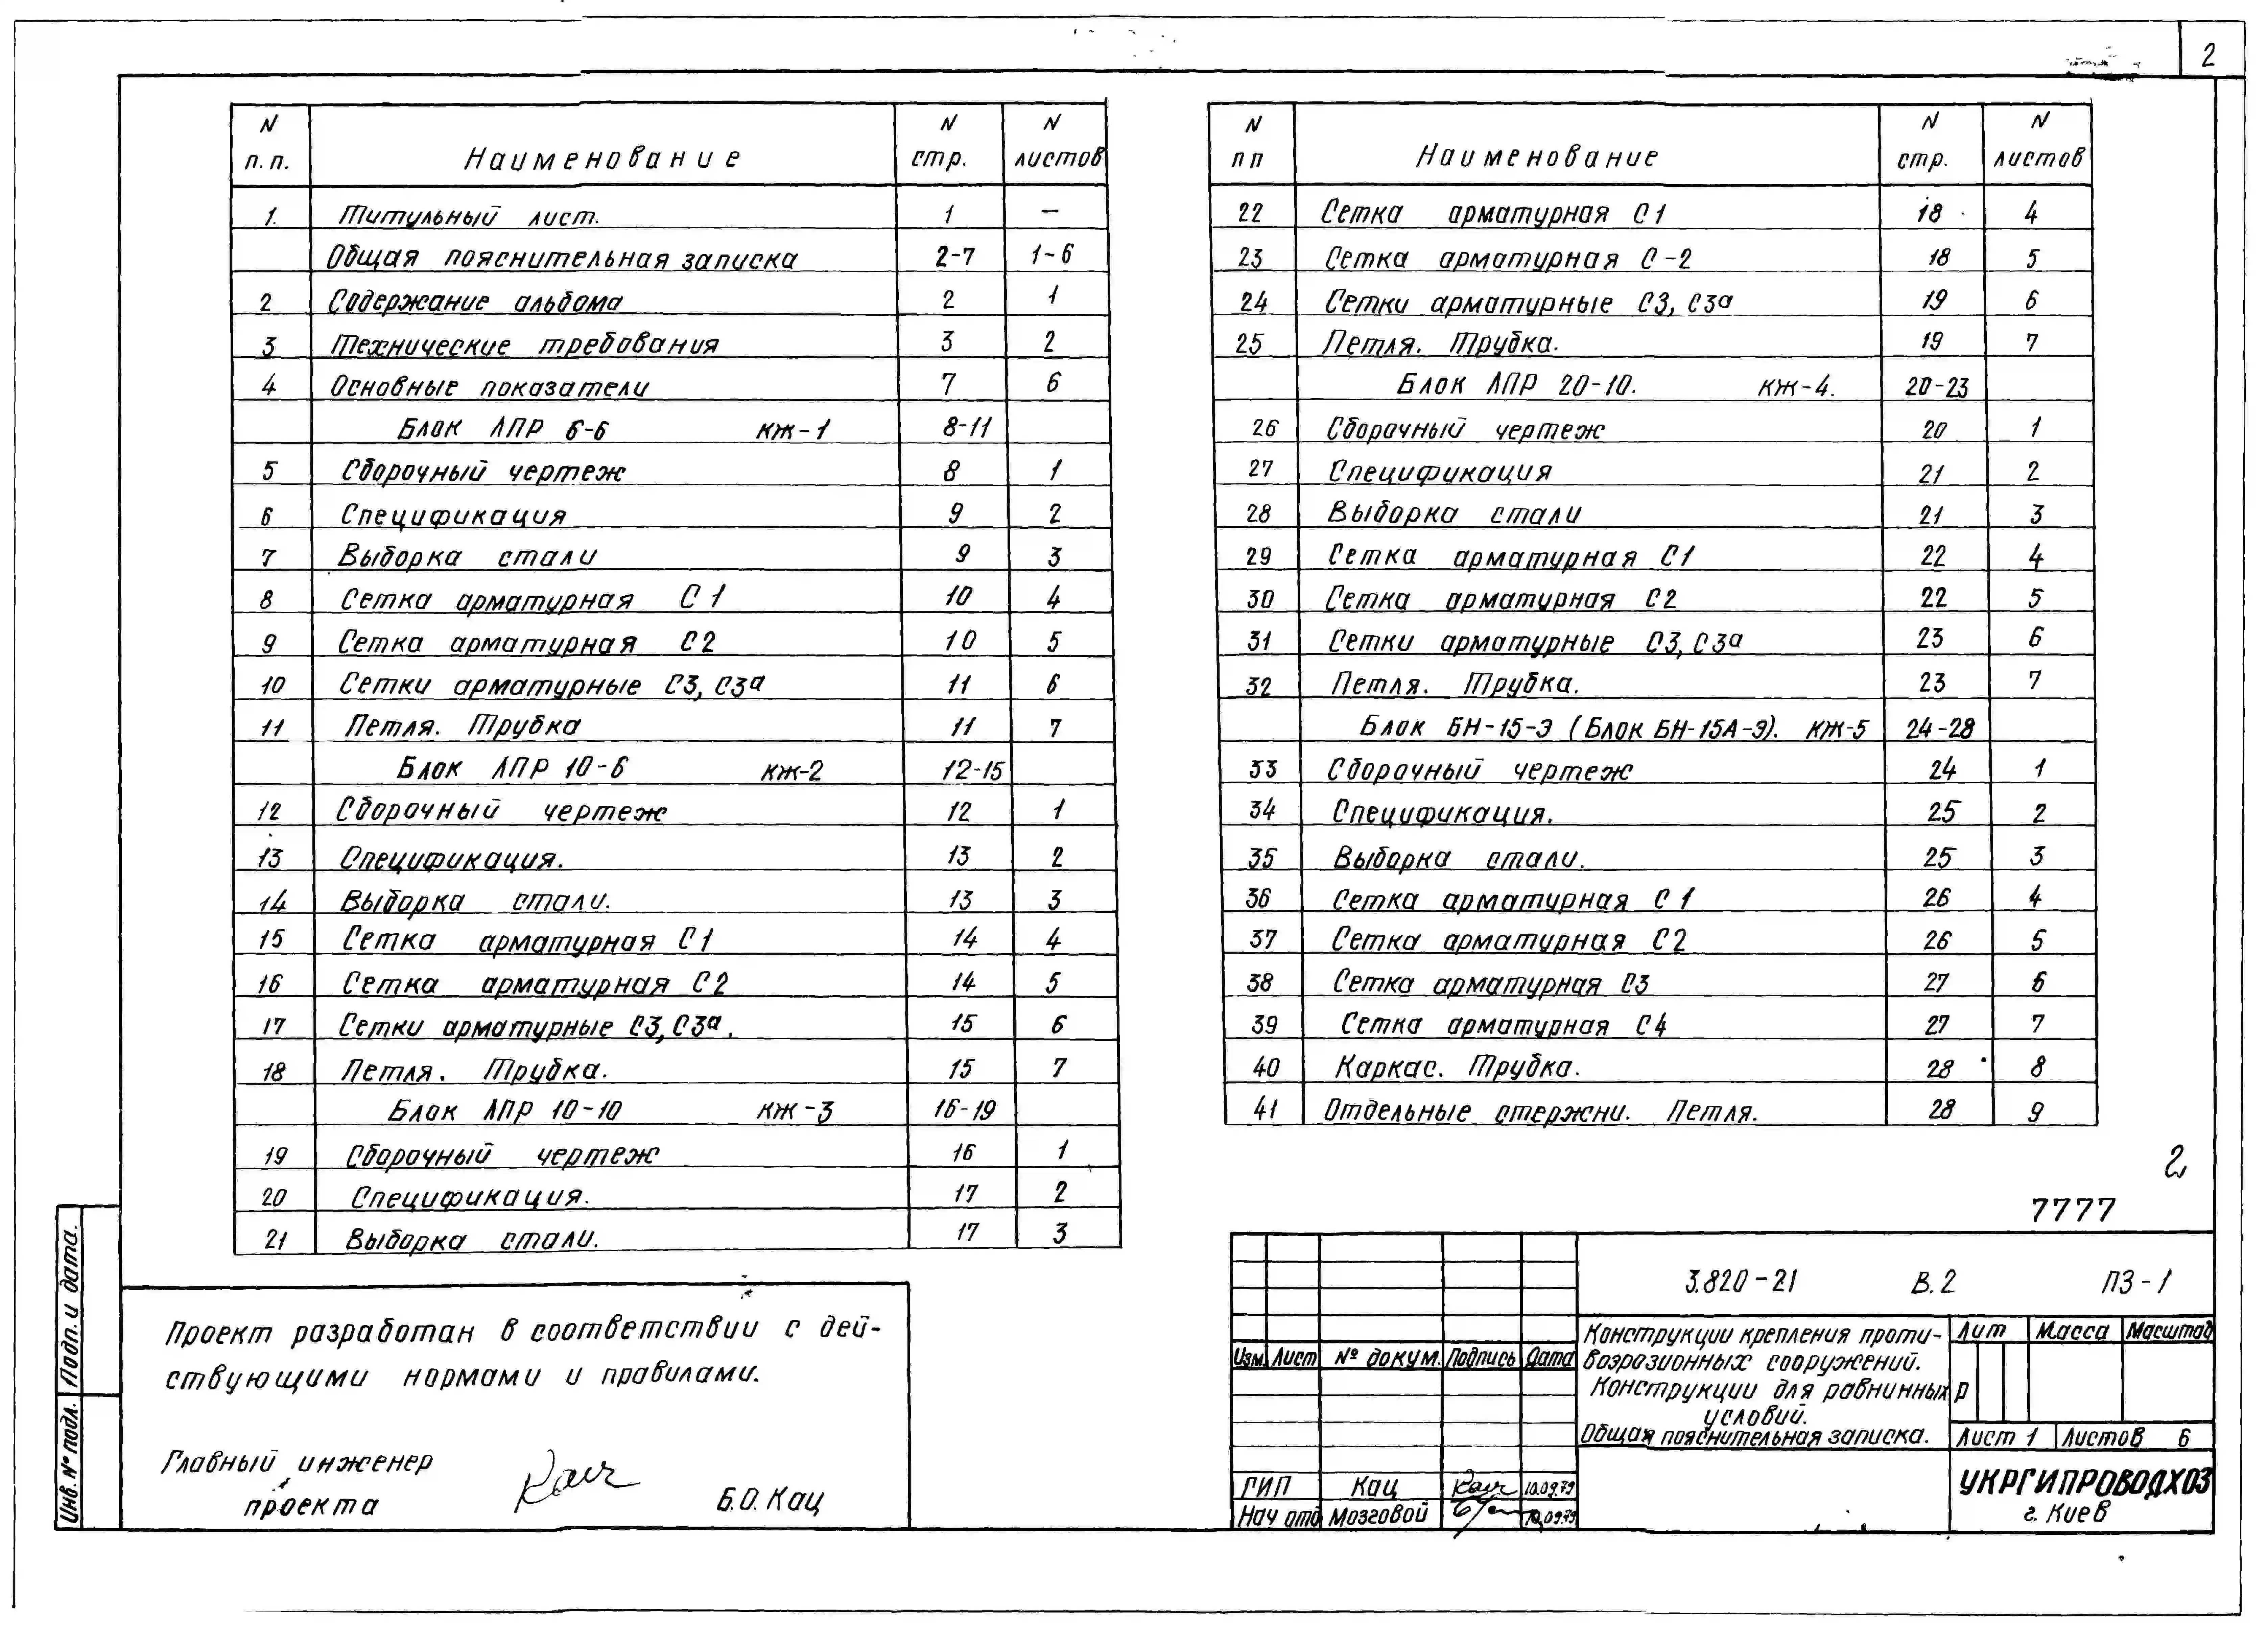 2
N п.п. Наименование N стр. N листов
1. Титульный лист. 1 —
Общая пояснительная записка 2-7 1-6
2 Содержание альбома 2 1
3 Технические требования 3 2
4 Основные показатели 7 6
Блок ЛПР 6-6 КЖ-1 8-11
5 Сборочный чертеж 8 1
6 Спецификация 9 2
7 Выборка стали 9 3
8 Сетка арматурная С1 10 4
9 Сетка арматурная С2 10 5
10 Сетки арматурные С3, С3а 11 6
11 Петля. Трубка 11 7
Блок ЛПР 10-6 КЖ-2 12-15
12 Сборочный чертеж 12 1
13 Спецификация. 13 2
14 Выборка стали. 13 3
15 Сетка арматурная С1 14 4
16 Сетка арматурная С2 14 5
17 Сетки арматурные С3, С3а. 15 6
18 Петля. Трубка. 15 7
Блок ЛПР 10-10 КЖ-3 16-19
19 Сборочный чертеж 16 1
20 Спецификация. 17 2
21 Выборка стали. 17 3
N пп Наименование N стр. N листов
22 Сетка арматурная С1 18 4
23 Сетка арматурная С-2 18 5
24 Сетки арматурные С3, С3а 19 6
25 Петля. Трубка. 19 7
Блок ЛПР 20-10. КЖ-4. 20-23
26 Сборочный чертеж 20 1
27 Спецификация 21 2
28 Выборка стали 21 3
29 Сетка арматурная С1 22 4
30 Сетка арматурная С2 22 5
31 Сетки арматурные С3, С3а 23 6
32 Петля. Трубка. 23 7
Блок БН-15-Э (Блок БН-15А-Э). КЖ-5 24-28
33 Сборочный чертеж 24 1
34 Спецификация. 25 2
35 Выборка стали. 25 3
36 Сетка арматурная С1 26 4
37 Сетка арматурная С2 26 5
38 Сетка арматурная С3 27 6
39 Сетка арматурная С4 27 7
40 Каркас. Трубка. 28 8
41 Отдельные стержни. Петля. 28 9
2
7777
Проект разработан в соответствии с дей-
ствующими нормами и правилами.
Главный инженер
проекта Б.О. Кац
Подп. и дата.
Инв. № подл.
3.820-21 В.2 ПЗ-1
Изм. Лист № докум. Подпись Дата
Конструкции крепления проти-
воэрозионных сооружений.
Конструкции для равнинных
условий.
Общая пояснительная записка.
Лит Масса Масштаб
Р
Лист 1 Листов 6
ГИП Кац 10.09.79
Нач отд Мозговой 10.09.79
УКРГИПРОВОДХОЗ
г. Киев